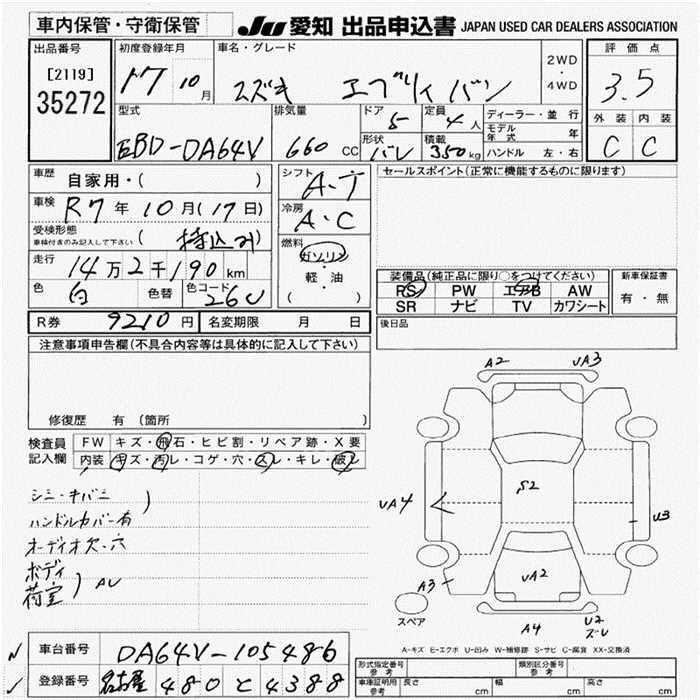 車内保管・守衛保管
JU 愛知 出品申込書 JAPAN USED CAR DEALERS ASSOCIATION
出品番号
[2119]
35272
初度登録年月
10月
車名・グレード
スズキ エブリィ バン
2WD
・
4WD
評価点
3.5
外装 内装
C C
型式
EBD-DA64V
排気量
660 CC
ドア
5
定員
4人
形状
バン
積載
350kg
ディーラー・並行
モデル年式 年
ハンドル 左・右
車歴
自家用・( )
車検
R7年10月(17日)
受検形態
車検付きのみ記入して下さい
(持込み)
走行
14万2千190km
色
白
色替
色コード
26U
シフト
A・T
冷房
A・C
燃料
ガソリン
・
軽・油
( )
セールスポイント(正常に機能するものに限ります)
装備品(純正品に限り○をつけてください)
PS PW エアB AW
SR ナビ TV カワシート
新車保証書
有・無
後日品
R券 9210円 名変期限 月 日
注意事項申告欄(不具合内容等は具体的に記入して下さい)
修復歴 有(箇所 )
検査員
記入欄
FW キズ・飛石・ヒビ割・リペア跡・X要
内装 キズ・汚レ・コゲ・穴・スレ・キレ・破レ
シミ・キバミ
ハンドルカバー有
オーディオ欠・穴
ボディ
荷室 AU
A2 UA3
S2
UA4
U3
UA2
A3
A4
U2
ズレ
スペア
A-キズ E-エクボ U-凹み W-補修跡 S-サビ C-腐食 XX-交換済
車台番号 DA64V-105486
登録番号 名古屋 480 と 4388
形式指定番号
参考
類別区分番号
参考
車庫証明用
参考
長さ cm 幅 cm 高さ cm